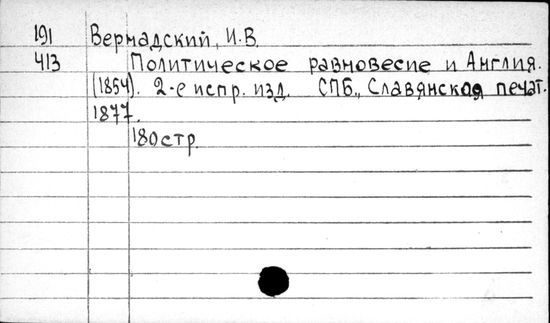 191 Вернадский, И.В.
413 Политическое равновесие и Англия.
(1854). 2-е испр. изд. СПБ., Славянская печат.
1877.
180 стр.